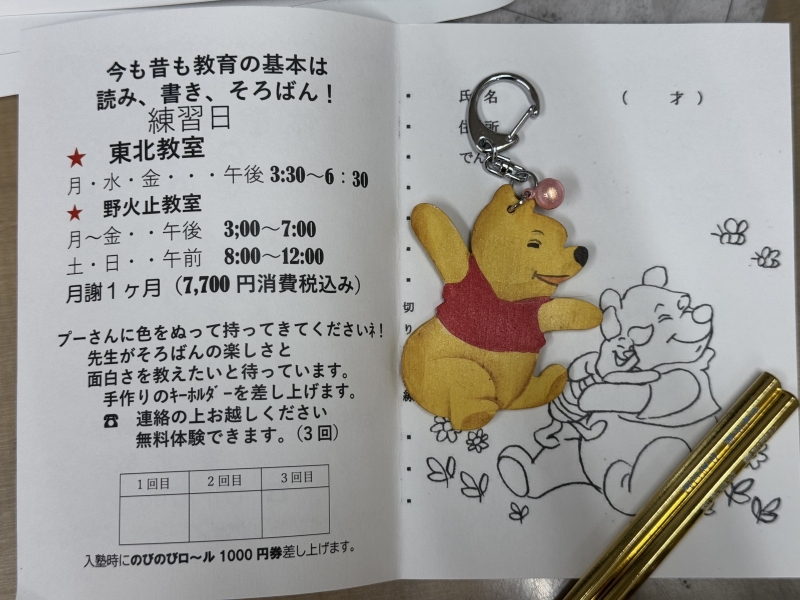 今も昔も教育の基本は
読み、書き、そろばん！
練習日
★ 東北教室
月・水・金・・・午後 3:30～6：30
★ 野火止教室
月～金・・午後 3;00～7:00
土・日・・午前 8:00～12:00
月謝１ヶ月（7,700 円消費税込み）
プーさんに色をぬって持ってきてくださいネ！
先生がそろばんの楽しさと
面白さを教えたいと待っています。
手作りのキーホルダーを差し上げます。
☎ 連絡の上お越しください
無料体験できます。（３回）
１回目 ２回目 ３回目
入塾時にのびのびロ～ル 1000 円券差し上げます。
氏名 （ 才）
住所
でん
切り